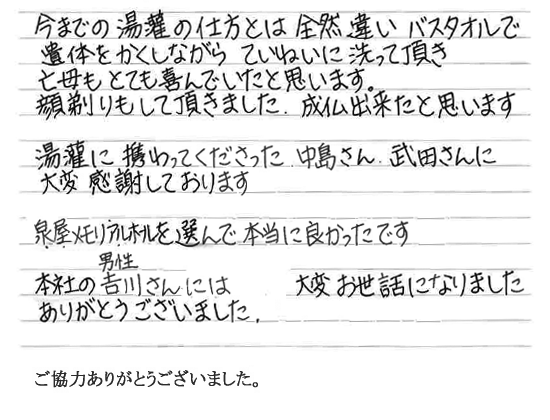 今までの湯灌の仕方とは全然違いバスタオルで
遺体をかくしながらていねいに洗って頂き
亡母もとても喜んでいたと思います。
顔剃りもして頂きました．成仏出来たと思います
湯灌に携わってくださった中島さん．武田さんに
大変感謝しております
泉屋メモリアルホールを選んで本当に良かったです
男性
本社の吉川さんには 大変お世話になりました
ありがとうございました．
ご協力ありがとうございました。